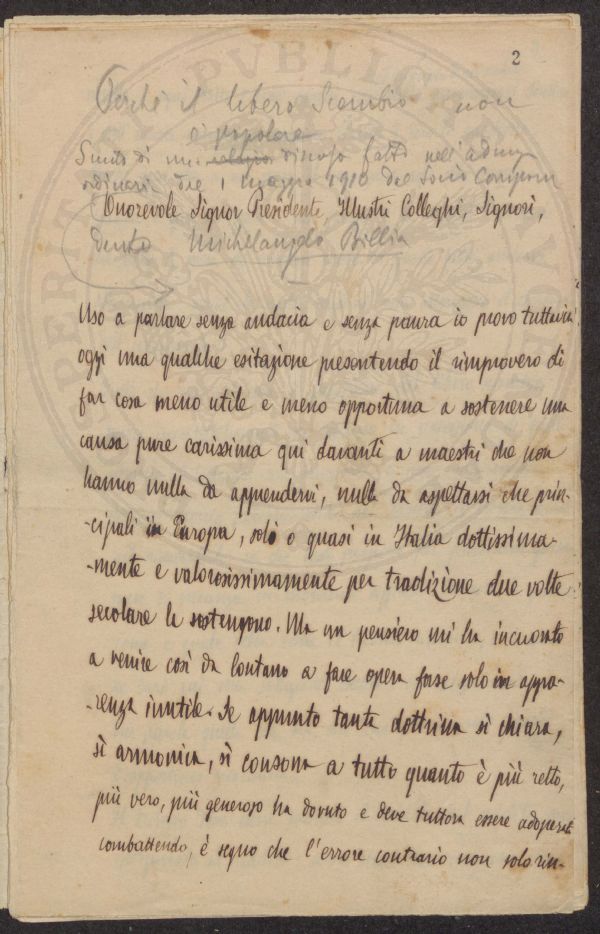 2
Perchè il libero Scambio non
è popolare
Sunto di un discorso fatto nell'adun
ordinaria del 1 maggio 1910 dal Socio Corrispon
Onorevole Signor Presidente, Illustri Colleghi, Signori,
dente Michelangelo Billia
Uso a parlare senza audacia e senza paura io provo tuttavia
oggi una qualche esitazione presentendo il rimprovero di
far cosa meno utile e meno opportuna a sostenere una
causa pure carissima qui davanti a maestri che non
hanno nulla da apprendervi, nulla da aspettarsi che prin-
-cipali in Europa, soli o quasi in Italia dottissima-
-mente e valorosissimamente per tradizione due volte
secolare la sostengono. Ma un pensiero mi ha incuorato
a venire così da lontano a fare opera forse solo in appa-
-renza inutile. Se appunto tanta dottrina sì chiara,
sì armonica, sì consona a tutto quanto è più retto,
più vero, più generoso ha dovuto e deve tuttora essere adoperata
combattendo, è segno che l'errore contrario non solo rin-
PERITIA PVBLICAE